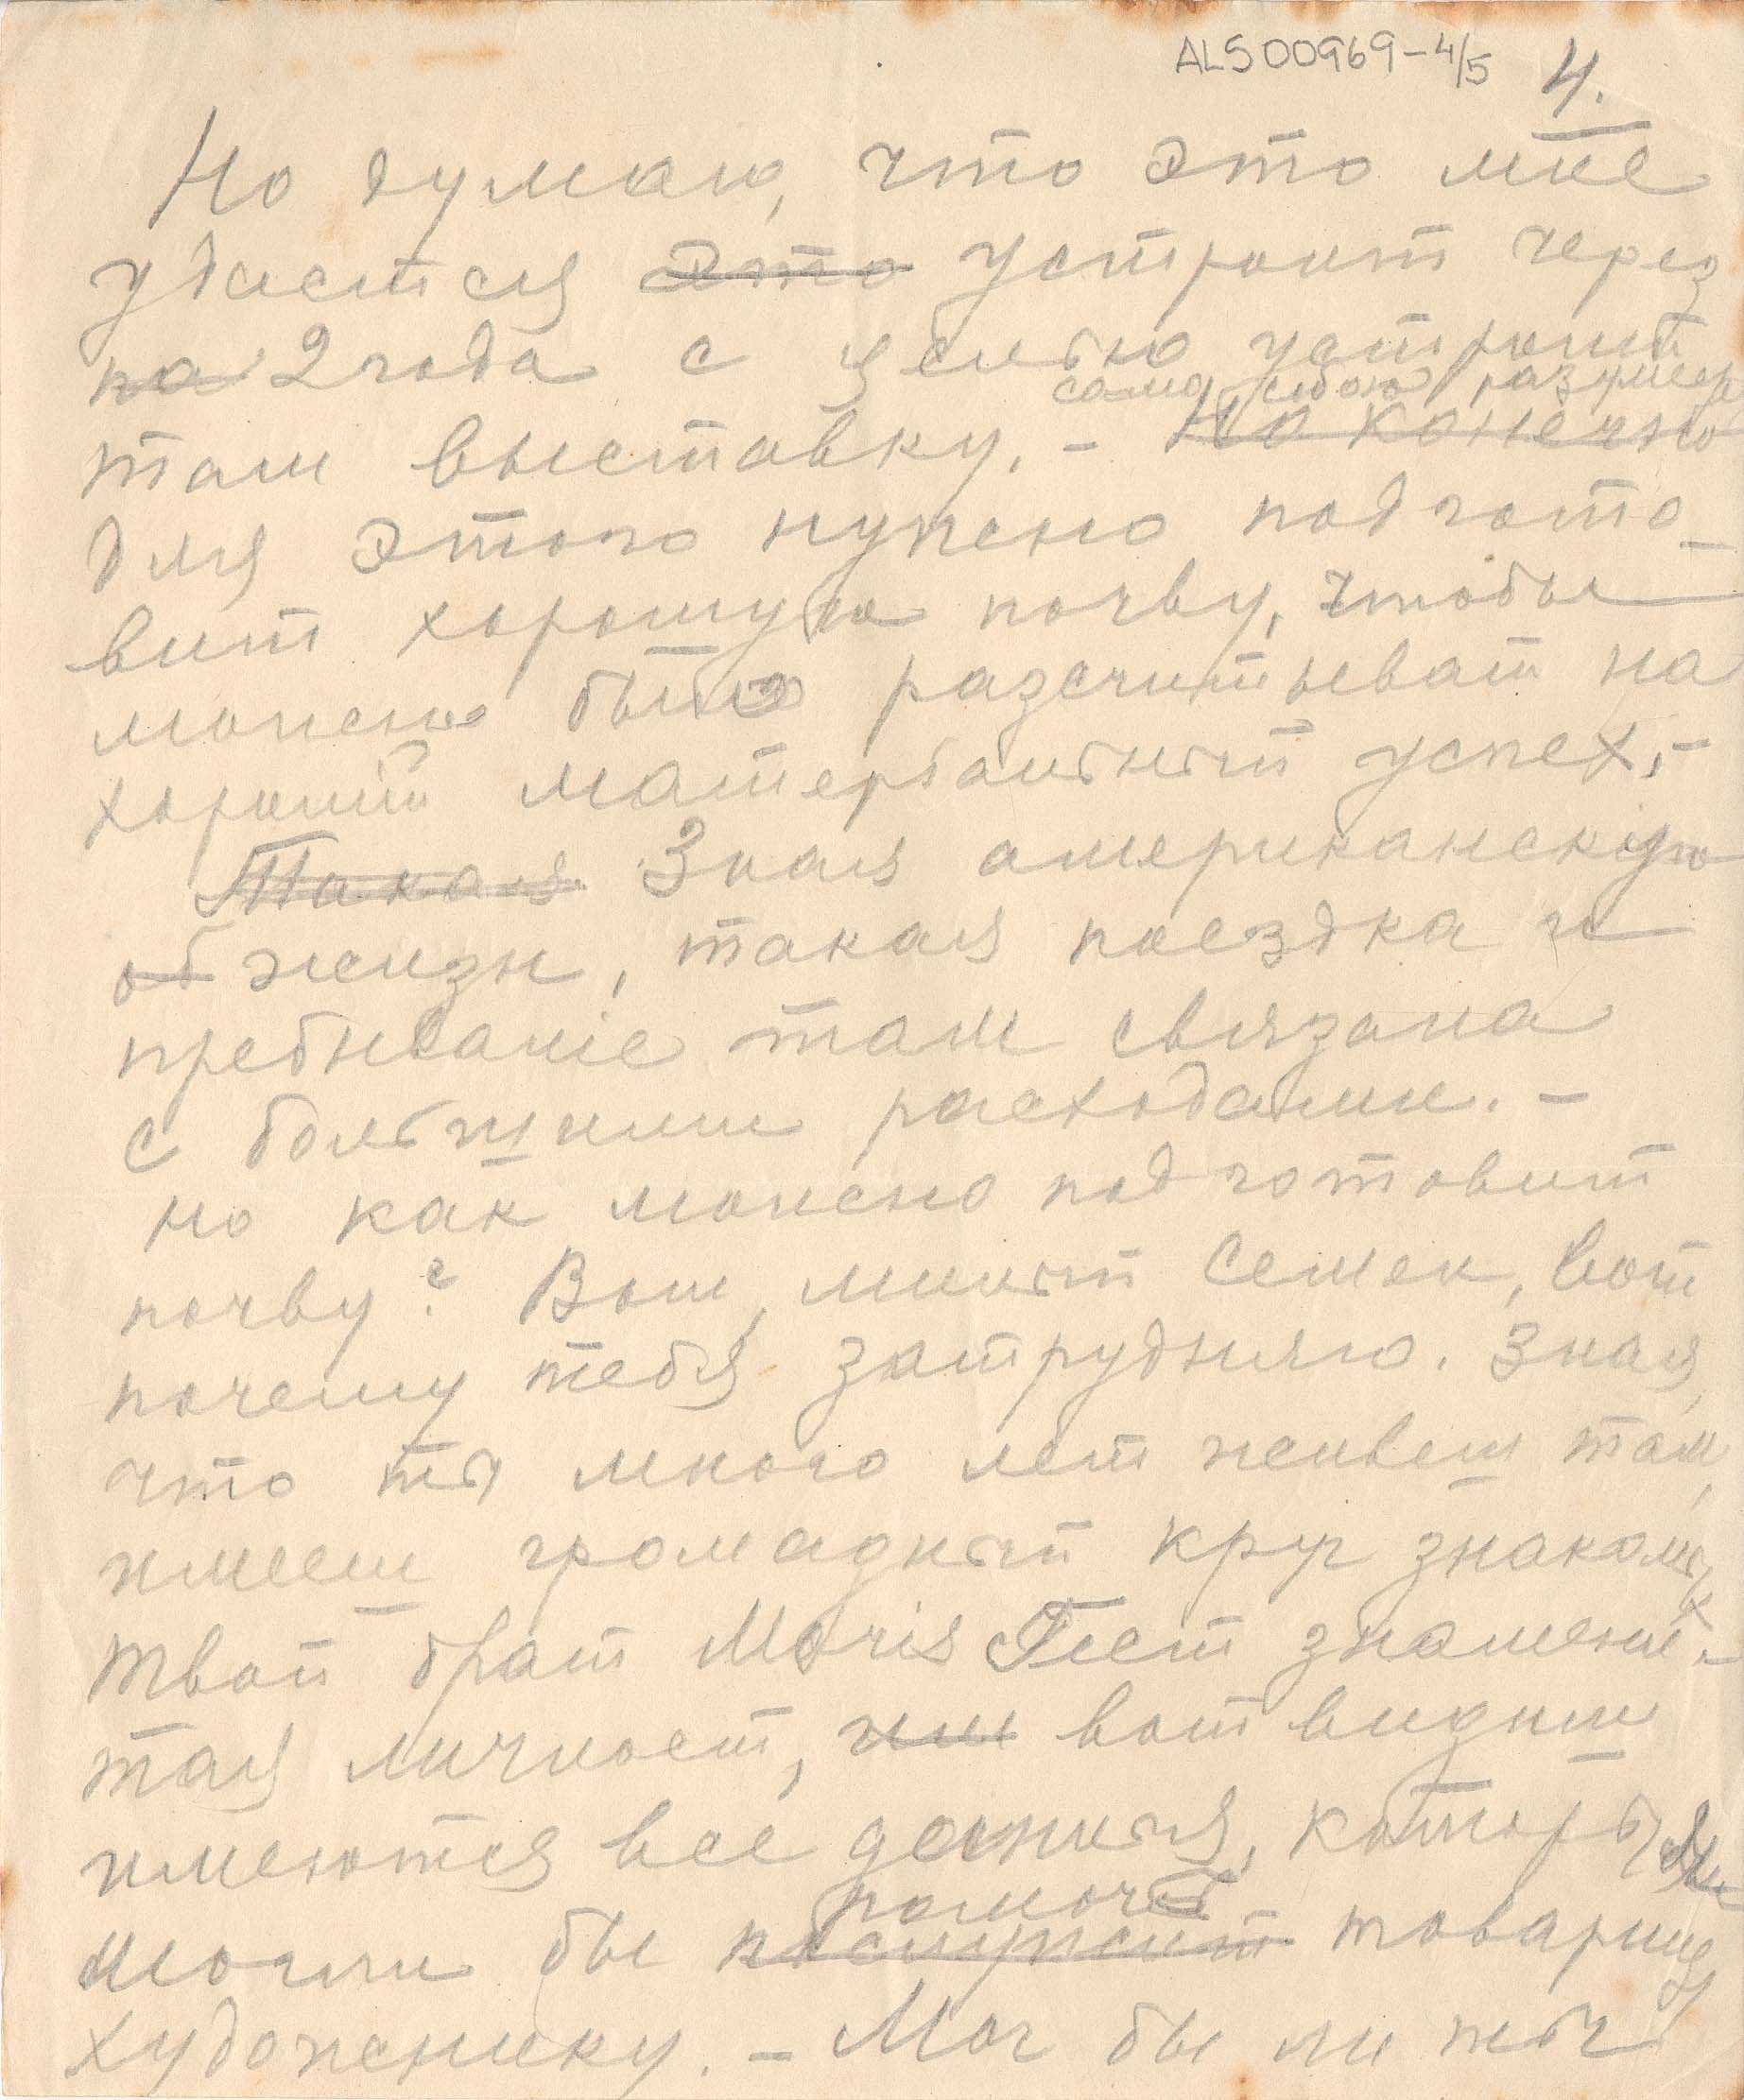 ALS 00969-4/5 4.
Но думаю, что это мне
удастся это устроит через
на 2 года с целью устроит
само собою разумеется
там выставку. - Но конечно
для этого нужно подгото-
вит хорошую почву, чтобы
можно было разсчитыват на
хороший матерьяльный успех, -
Такая Зная американскую
об жизн, такая поездка и
пребываніе там связана
с большими расходами. -
но как можно подготовит
почву? Вот, милый Семек, вот
почему тебя затрудняю. Зная,
что ты много лет живеш там,
имееш громадный круг знакомых
твой брат Moris Гест знамени-
тая личност, или вот видиш
имеются все данныя, которыя
помочь
могли бы послужит товарищу
художнику. - Мог бы ли ты